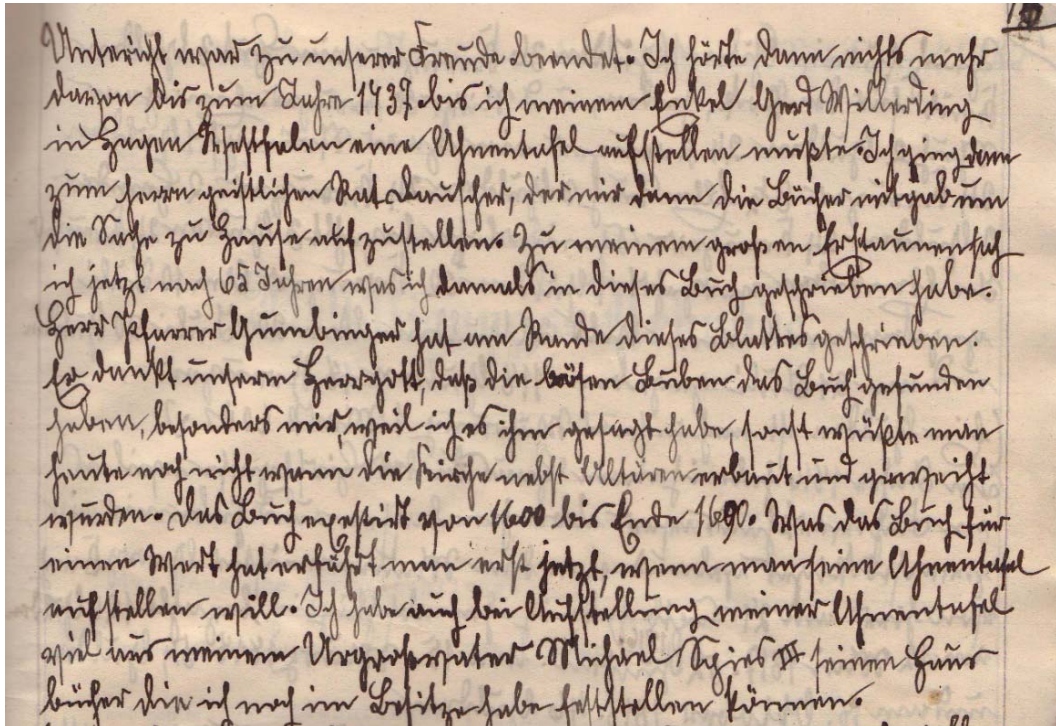 Unterricht war zu unserer Freude beendet. Ich hörte dann nichts mehr
davon bis zum Jahre 1937. bis ich meinem Enkel Gerd Willerding
in Hagen Westfalen eine Ahnentafel aufstellen mußte. Ich ging dann
zum Herrn geistlichen Rat Dauscher, der mir dann die Bücher mitgab um
die Sache zu Hause aufzustellen. Zu meinem großen Erstaunen sah
ich jetzt nach 65 Jahren was ich damals in dieses Buch geschrieben habe.
Herr Pfarrer Gumbinger hat am Rande dieses Blattes geschrieben.
Er dankt unserm Herrgott, daß die bösen Buben das Buch gefunden
haben, besonders mir, weil ich es ihm gesagt habe, sonst wüßte man
heute noch nicht wann die Kirche nebst Altären erbaut und geweiht
wurden. Das Buch expestirt von 1600 bis Ende 1690. Was das Buch für
einen Wert hat erfährt man erst jetzt, wenn man seine Ahnentafel
aufstellen will. Ich habe auch bei Aufstellung meiner Ahnentafel
viel aus meinem Urgroßvater Michael Spies III seinen Haus
bücher die ich noch im Besitze habe feststellen können.